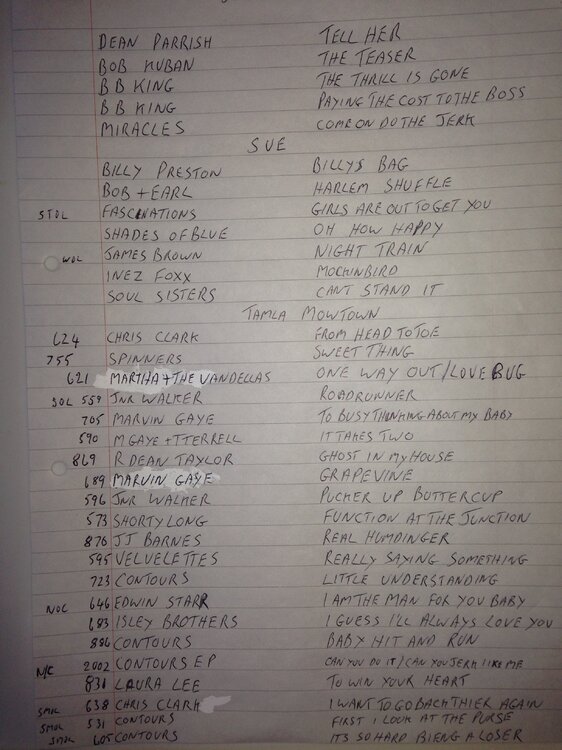 DEAN PARRISH TELL HER
BOB KUBAN THE TEASER
B B KING THE THRILL IS GONE
B B KING PAYING THE COST TO THE BOSS
MIRACLES COME ON DO THE JERK
SUE
BILLY PRESTON BILLYS BAG
BOB + EARL HARLEM SHUFFLE
STOL FASCINATIONS GIRLS ARE OUT TO GET YOU
SHADES OF BLUE OH HOW HAPPY
WOL JAMES BROWN NIGHT TRAIN
INEZ FOXX MOCKINBIRD
SOUL SISTERS CANT STAND IT
TAMLA MOWTOWN
624 CHRIS CLARK FROM HEAD TO TOE
755 SPINNERS SWEET THING
621 MARTHA + THE VANDELLAS ONE WAY OUT/LOVE BUG
SOL 559 JNR WALKER ROADRUNNER
705 MARVIN GAYE TO BUSY THINKING ABOUT MY BABY
590 M GAYE + T TERRELL IT TAKES TWO
869 R DEAN TAYLOR GHOST IN MY HOUSE
689 MARVIN GAYE GRAPEVINE
596 JNR WALKER PUCKER UP BUTTERCUP
573 SHORTY LONG FUNCTION AT THE JUNCTION
876 JJ BARNES REAL HUMDINGER
595 VELVELETTES REALLY SAYING SOMETHING
723 CONTOURS LITTLE UNDERSTANDING
NOC 646 EDWIN STARR I AM THE MAN FOR YOU BABY
683 ISLEY BROTHERS I GUESS I'LL ALWAYS LOVE YOU
886 CONTOURS BABY HIT AND RUN
N/C 2002 CONTOURS EP CAN YOU DO IT/CAN YOU JERK LIKE ME
831 LAURA LEE TO WIN YOUR HEART
638 CHRIS CLARK I WANT TO GO BACK THIER AGAIN
531 CONTOURS FIRST I LOOK AT THE PURSE
605 CONTOURS ITS SO HARD BIENG A LOSER